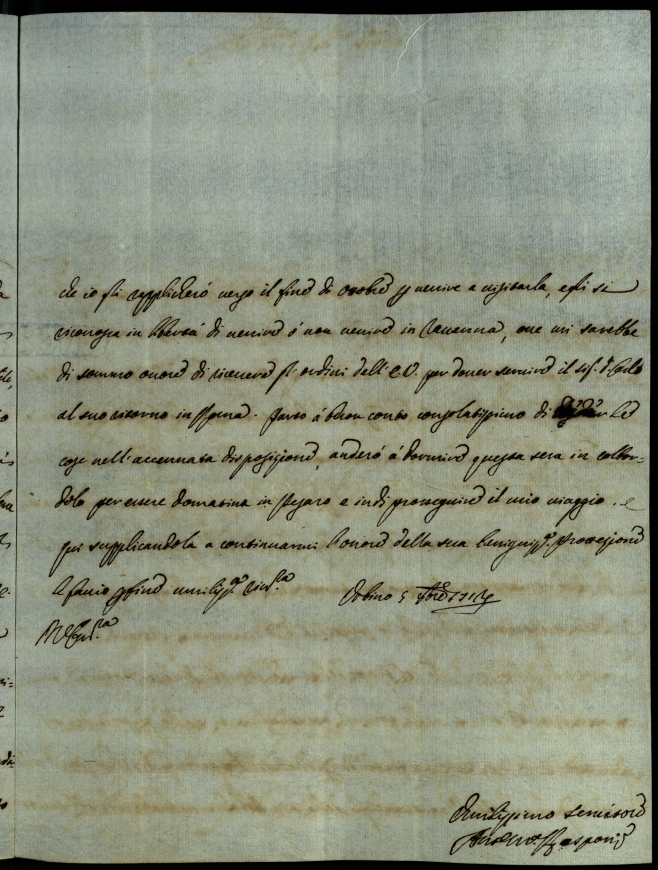 che io gli applicherò verso il fine di ottobre p venire a visitarla, egli si
ritrovga in libertà di venire ò non venire in Ravenna, ove mi sarebbe
di sommo onore di ricevere gl'ordini dell'E.V. per dover servire il sig.r Carlo
al suo ritorno in Roma. Parto à buon conto consolatissimo di le
cose nell'accennata disposizione, anderò à dormire questa sera in
per essere domatina in Pesaro e indi proseguire il mio viaggio. e
qui supplicandola a continuarmi l'onore della sua benigniss.ma Protezione
le faccio p fine umiliss.ma riv.za
Urbino 5
Umilissimo Servitore
Rasponi